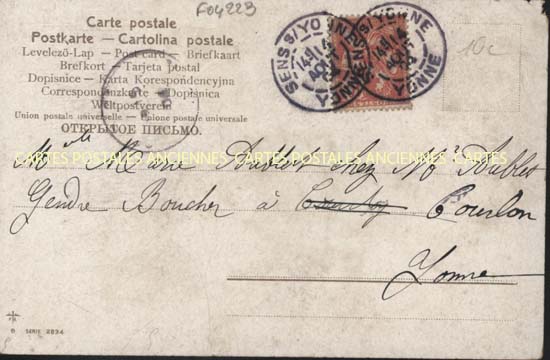 F04223
Carte postale
Postkarte — Cartolina postale
Levelező-Lap — Post card — Briefkaart
Brefkort — Tarjeta postal
Dopisnice — Karta Korespondencyjna
Correspondenzkarte — Dopisnica
Weltpostverein
Union postale universelle — Unione postale universale
ОТКРЫТОЕ ПИСЬМО.
SENS S/YONNE
YONNE
SENS S/YONNE
YONNE
10c
CARTES POSTALES ANCIENNES CARTES POSTALES ANCIENNES CARTES
Mlle Marie chez Mr
Gendre Boucher à Courlon
Yonne
6 SERIE 2834